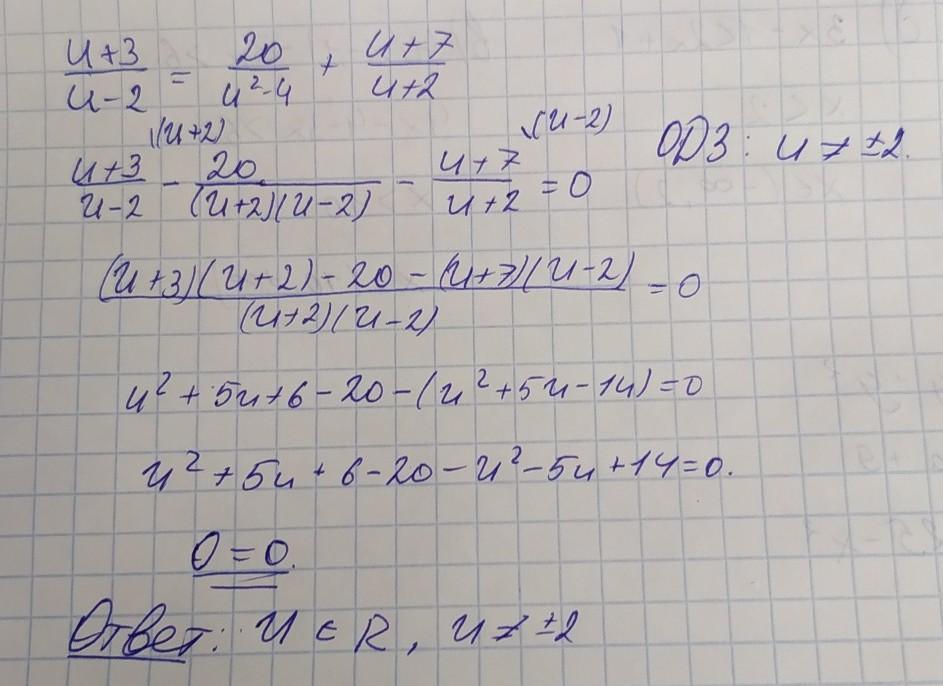 (u+3)/(u-2) = 20/(u²-4) + (u+7)/(u+2)
(u+3)/(u-2) \(u+2) - 20/((u+2)(u-2)) - (u+7)/(u+2) \(u-2) = 0 ОДЗ: u ≠ ±2.
((u+3)(u+2)-20-(u+7)(u-2))/((u+2)(u-2)) = 0
u²+5u+6-20-(u²+5u-14)=0
u²+5u+6-20-u²-5u+14=0.
0=0.
Ответ: u ∈ R, u ≠ ±2